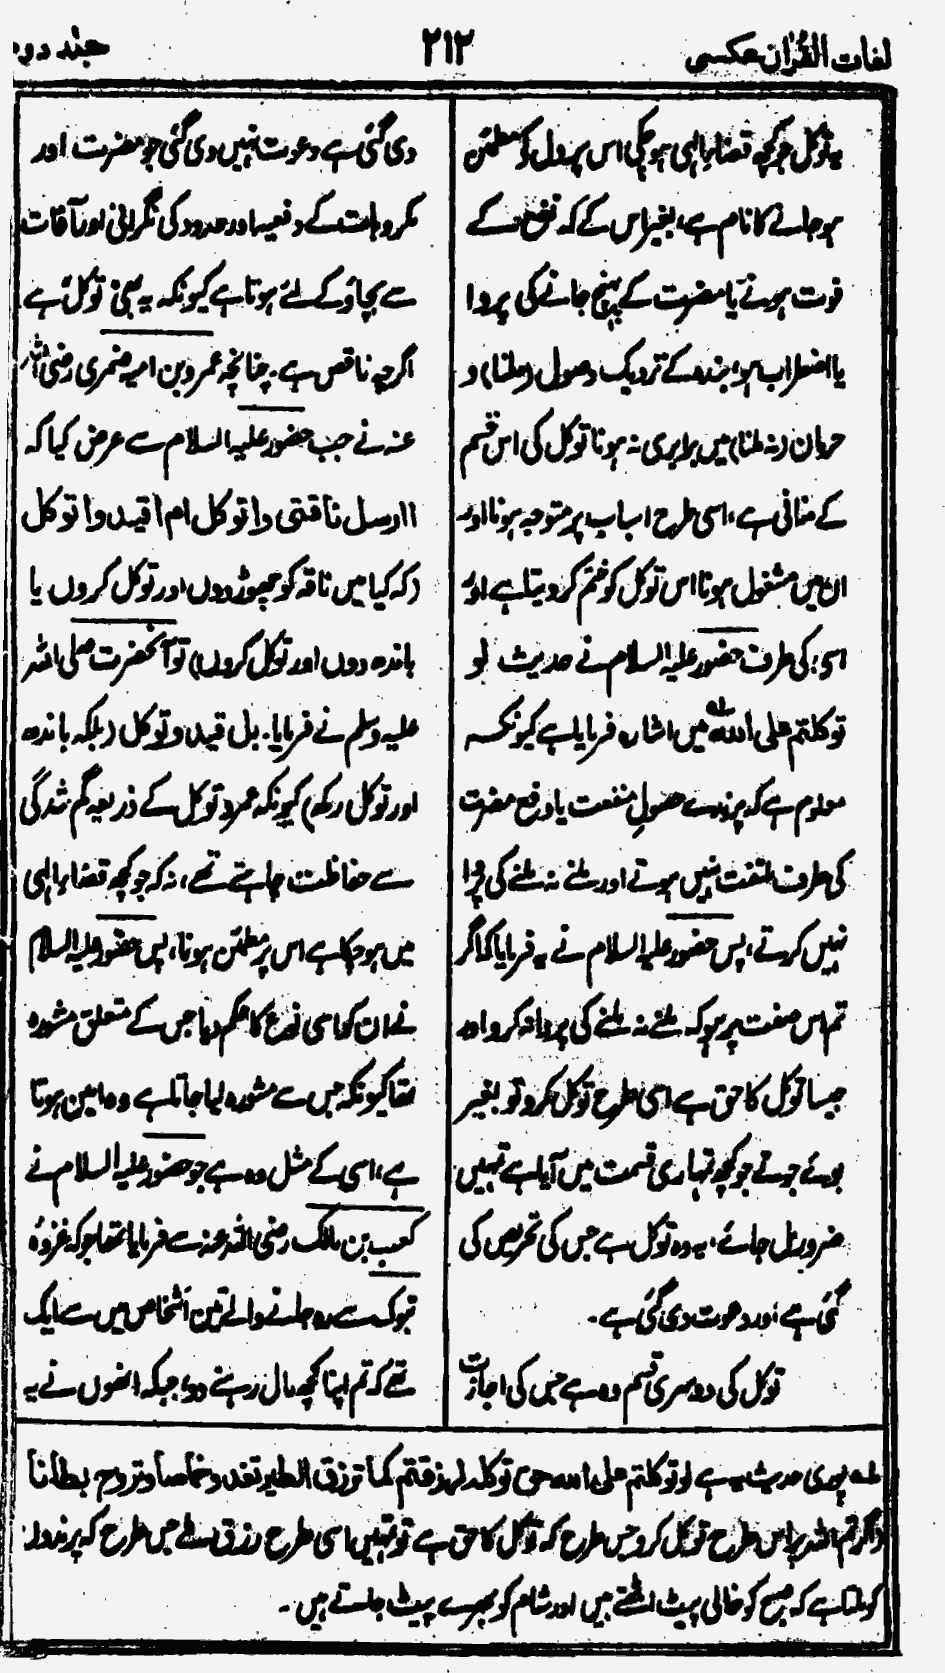 لغات القرآن عکسی
۲۱۲
جلد دوم
یہ توکل جو کچھ قضاءِ الٰہی ہو چکی اس پر دل کو مطمئن
ہو جانے کا نام ہے، بغیر اس کے کہ نفع کے
فوت ہونے یا مضرت کے پہنچ جانے کی پروا
یا اضطراب ہو، بندہ کے نزدیک وصول (ملنا) و
حرمان (نہ ملنا) میں برابری نہ ہونا توکل کی اس قسم
کے منافی ہے، اسی طرح اسباب پر متوجہ ہونا اور
ان میں مشغول ہونا اس توکل کو ختم کر دیتا ہے اور
اسی کی طرف حضور علیہ السلام نے حدیث لو
توکلتم علی اللہ لہ میں اشارہ فرمایا ہے کیونکہ
معلوم ہے کہ پرندے حصولِ منفعت یا دفع مضرت
کی طرف ملتفت نہیں ہوتے اور ملنے نہ ملنے کی پروا
نہیں کرتے، پس حضور علیہ السلام نے یہ فرمایا کہ اگر
تم اس صفت پر ہو کہ ملنے نہ ملنے کی پروا نہ کرو اور
جیسا توکل کا حق ہے اسی طرح توکل کرو تو بغیر
بوئے جوتے جو کچھ تمہاری قسمت میں آیا ہے تمہیں
ضرور مل جائے، یہ وہ توکل ہے جس کی تحریص کی
گئی ہے اور دعوت دی گئی ہے۔
توکل کی دوسری قسم وہ ہے جس کی اجازت
دی گئی ہے دعوت نہیں دی گئی جو مضرت اور
مکروہات کے دفعیہ اور حدود کی نگرانی اور آفات
سے بچاؤ کے لئے ہوتا ہے کیونکہ یہ بھی توکل ہے
اگرچہ ناقص ہے۔ چنانچہ عمرو بن امیہ ضمری رضی اللہ
عنہ نے جب حضور علیہ السلام سے عرض کیا کہ
اارسل ناقتی واتوکل ام اقید واتوکل
(کہ کیا میں ناقہ کو چھوڑ دوں اور توکل کروں یا
باندھ دوں اور توکل کروں) تو آنحضرت صلی اللہ
علیہ وسلم نے فرمایا۔ بل قید وتوکل (بلکہ باندھ
اور توکل رکھ) کیونکہ عمرو توکل کے ذریعہ گم شدگی
سے حفاظت چاہتے تھے، نہ کہ جو کچھ قضاءِ الٰہی
میں ہو چکا ہے اس پر مطمئن ہونا، پس حضور علیہ السلام
نے ان کو اسی نوع کا حکم دیا جس کے متعلق مشورہ
تھا کیونکہ جس سے مشورہ لیا جاتا ہے وہ امین ہوتا
ہے، اسی کے مثل وہ ہے جو حضور علیہ السلام نے
کعب بن مالک رضی اللہ عنہ سے فرمایا تھا جو کہ غزوۂ
تبوک سے رہ جانے والے تین اشخاص میں سے ایک
تھے کہ تم اپنا کچھ مال رہنے دو، جبکہ انھوں نے یہ
لہ پوری حدیث یہ ہے لو توکلتم علی اللہ حق توکلہ لرزقتم کما ترزق الطیر تغدو خماصاً وتروح بطاناً
(اگر تم اللہ پر اس طرح توکل کرو جس طرح کہ توکل کا حق ہے تو تمہیں اسی طرح رزق ملے جس طرح کہ پرندوں
کو ملتا ہے کہ صبح کو خالی پیٹ اٹھتے ہیں اور شام کو بھرے پیٹ جاتے ہیں۔